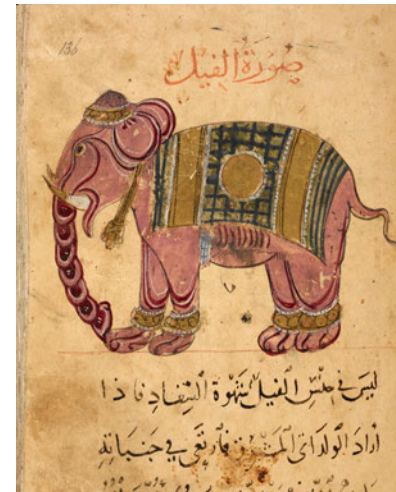 136
صورة الفيل
ليس في جنس الفيل شهوة السفاد فاذا
اراد الولد اتى المشرق فارتعى في جنباته